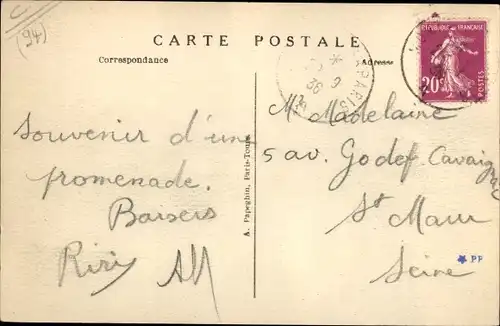 (94)
CARTE POSTALE
Correspondance
Adresse
RÉPUBLIQUE FRANÇAISE
20c
POSTES
PARIS
Souvenir d'une
promenade.
Baisers
Riri AM
A. Papeghin, Paris-Tours
Me Madelaine
5 av. Godef Cavaignac
St Maur
Seine
PF